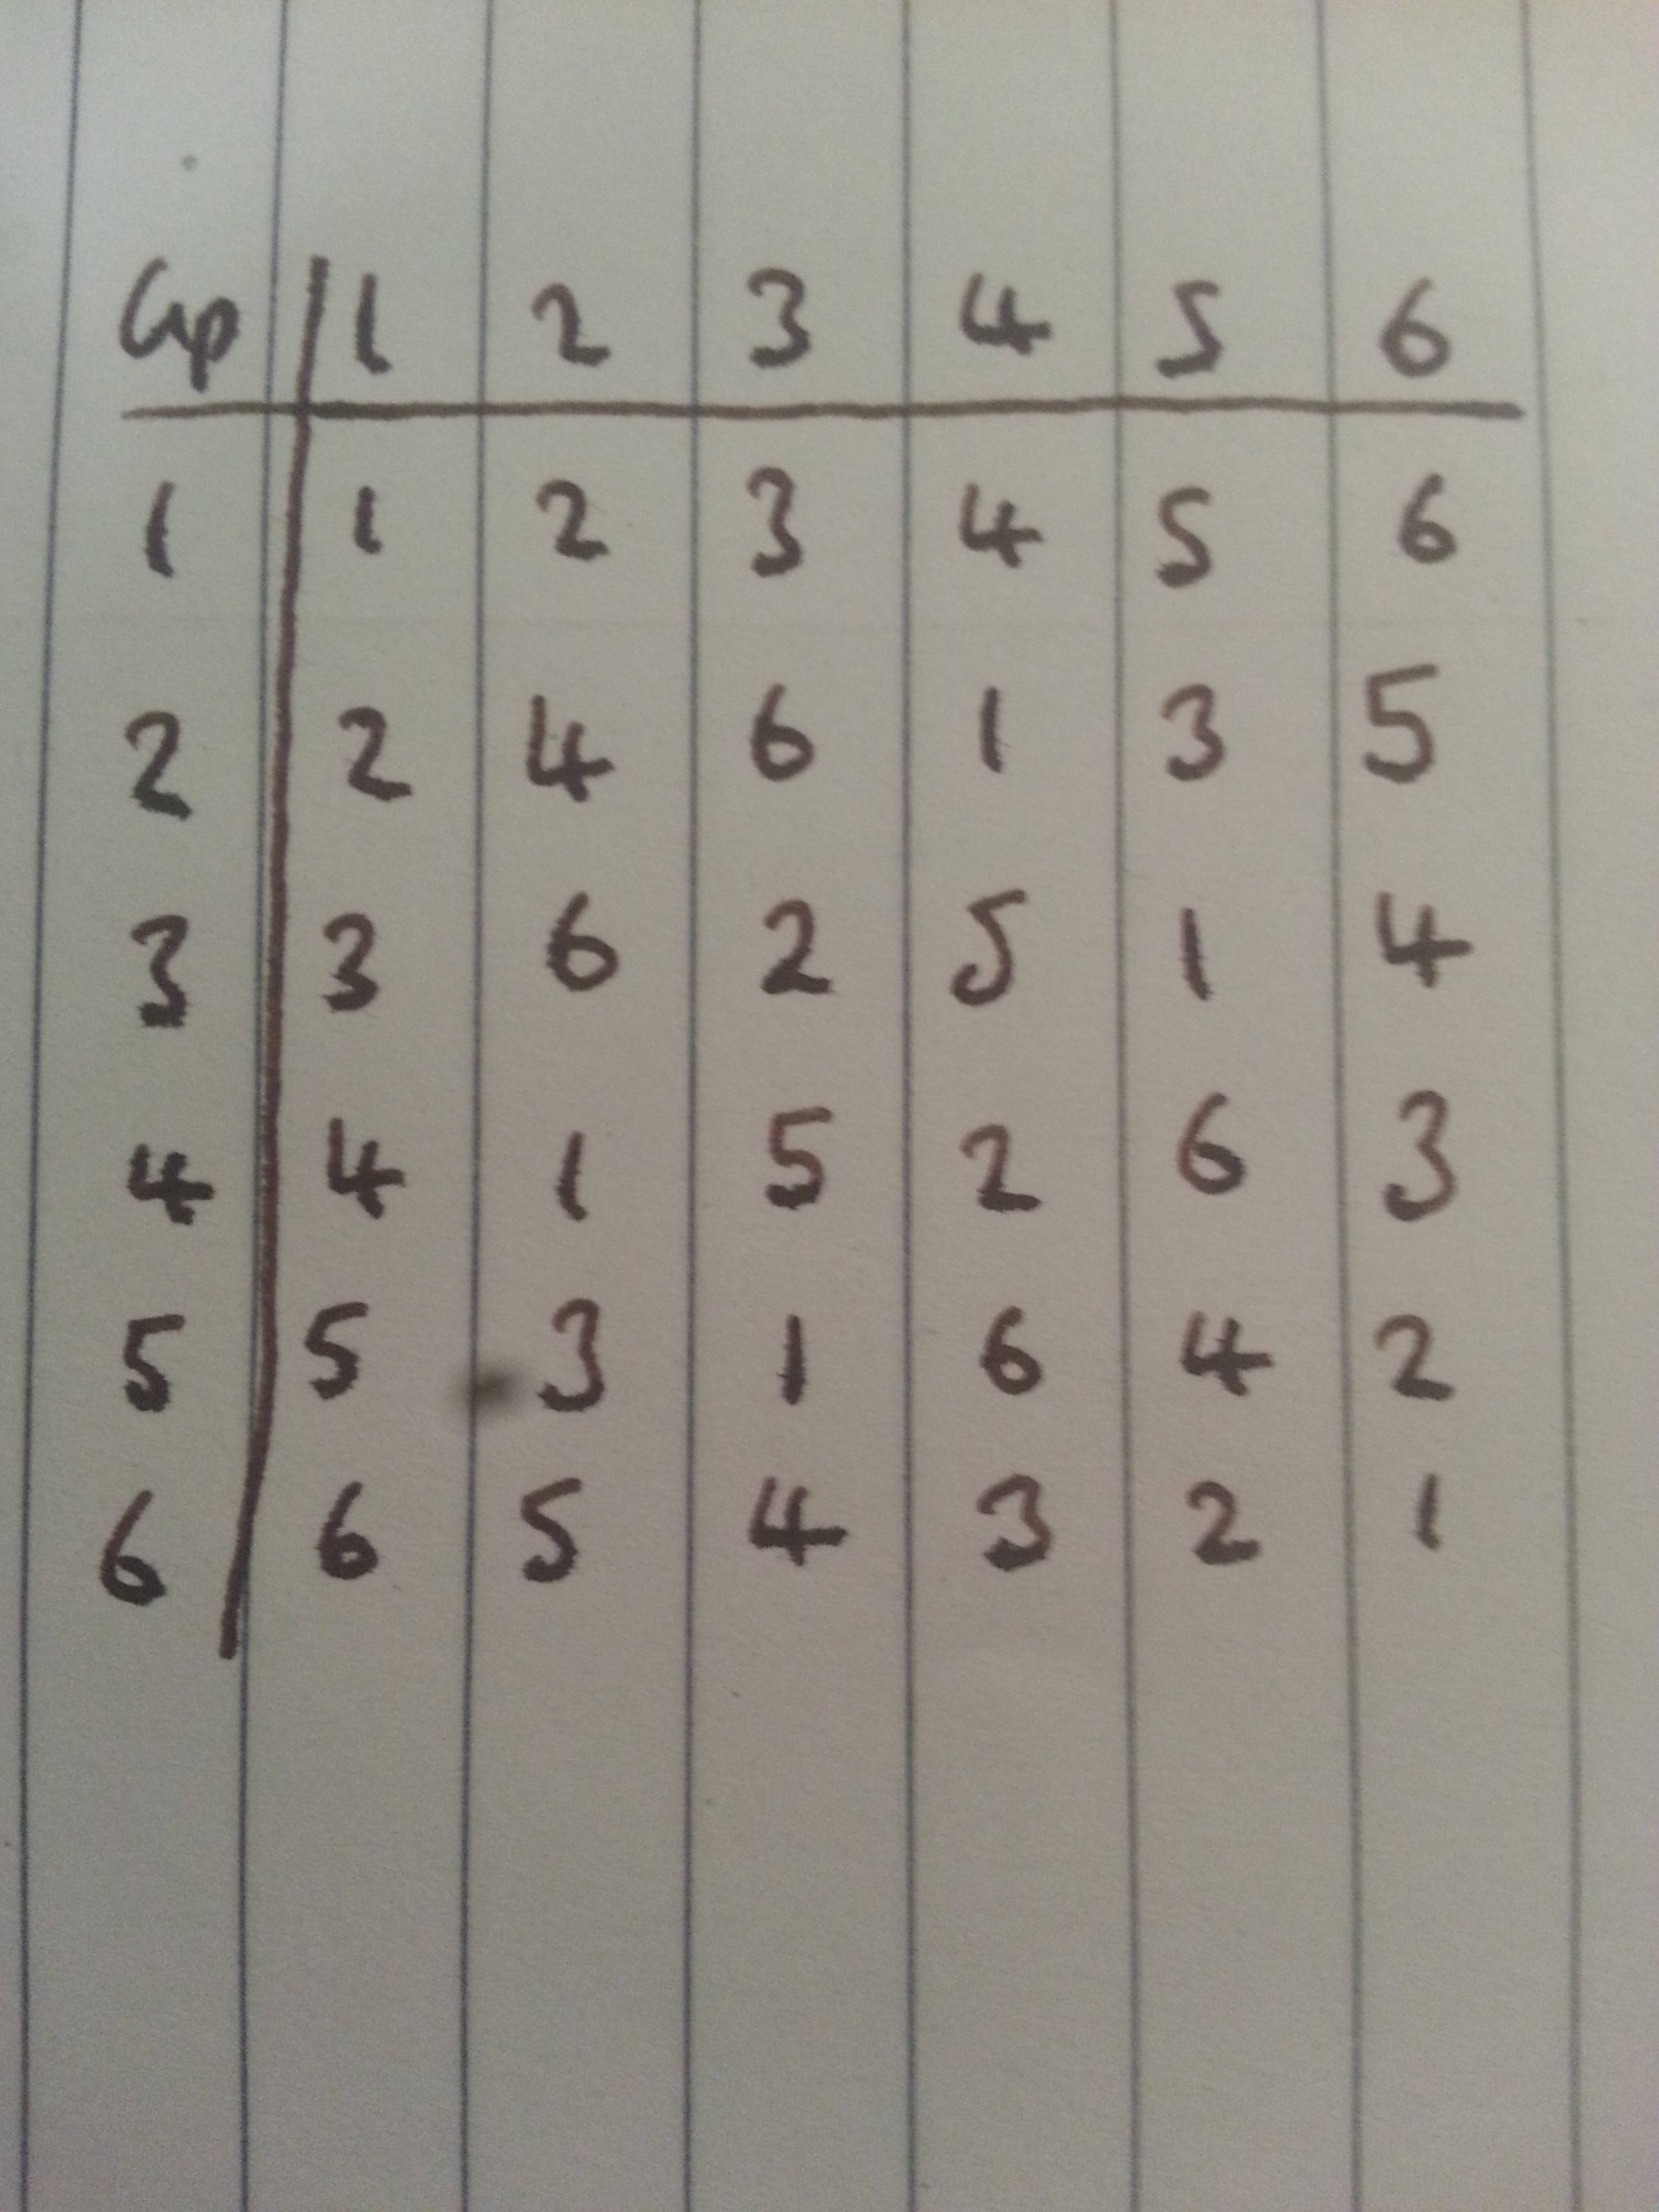 Gp 1 2 3 4 5 6
1 1 2 3 4 5 6
2 2 4 6 1 3 5
3 3 6 2 5 1 4
4 4 1 5 2 6 3
5 5 3 1 6 4 2
6 6 5 4 3 2 1